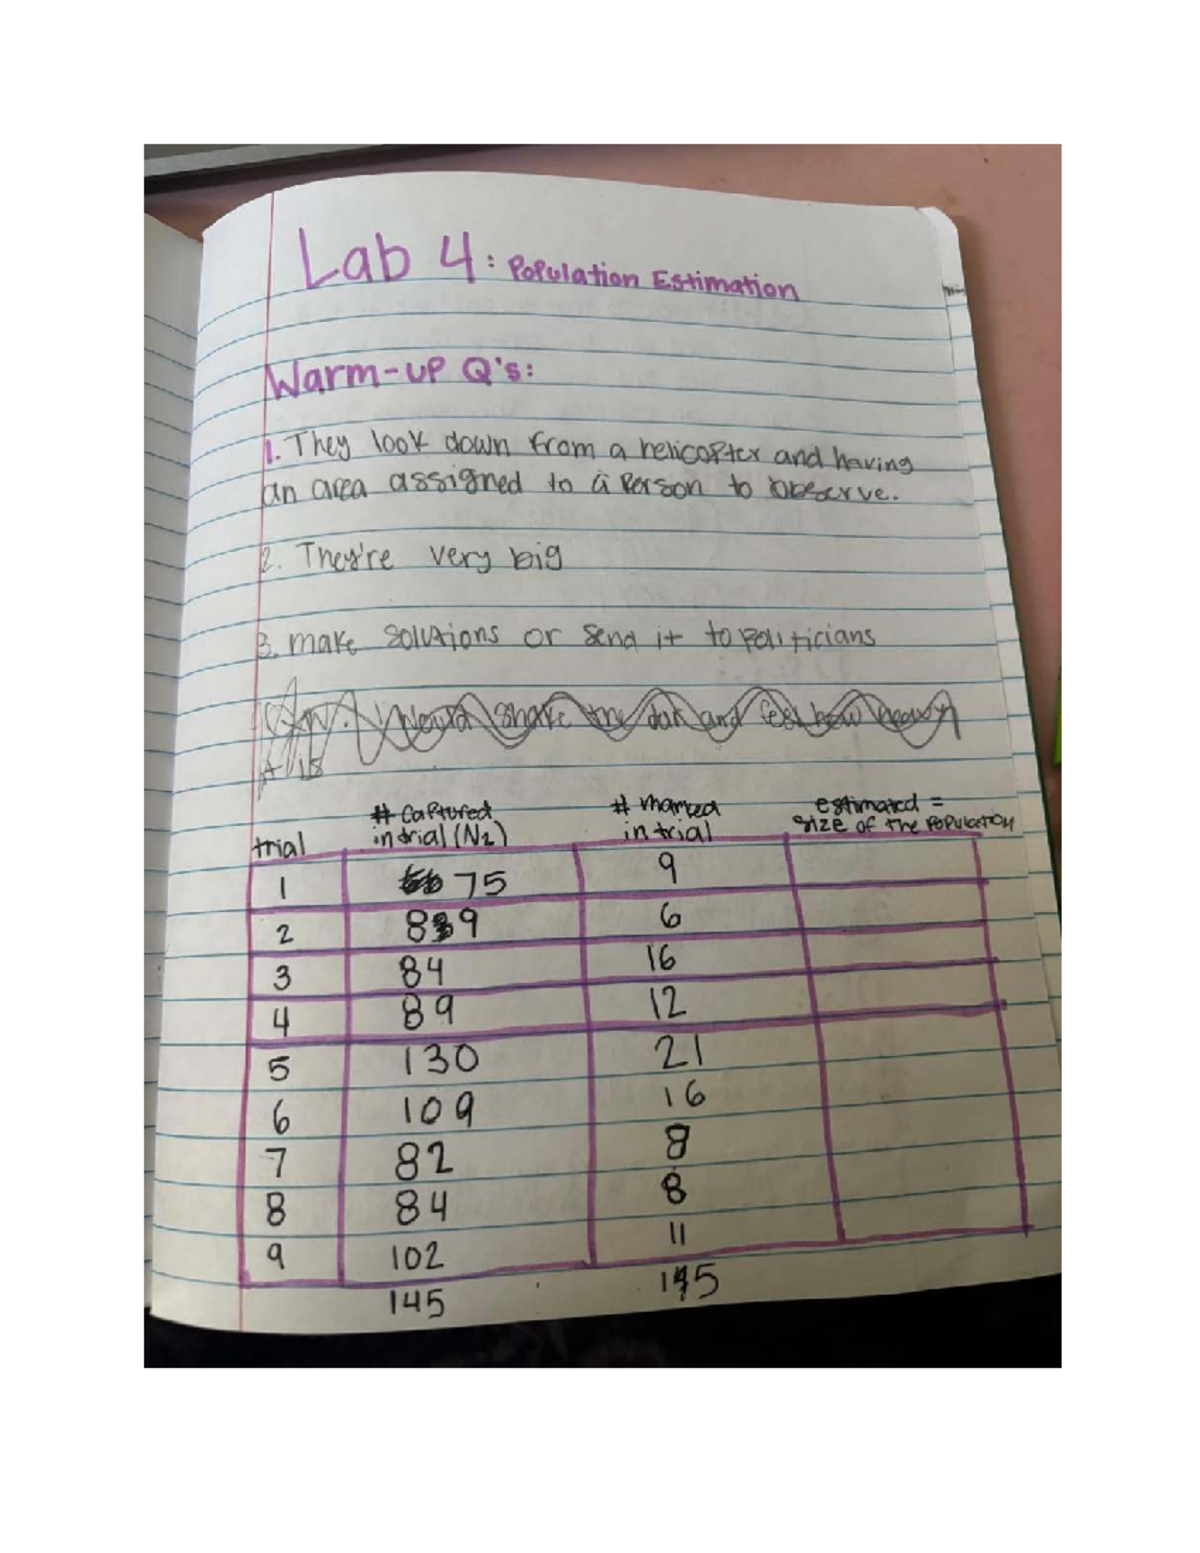 Lab 4: Population Estimation
Warm-up Q's:
1. They look down from a helicopter and having
an area assigned to a person to observe.
2. They're very big
3. make solutions or send it to politicians
I would shake the and feel how heavy
it is
trial # captured in trial (N2) # marked in trial estimated = size of the population
1 75 9
2 89 6
3 84 16
4 89 12
5 130 21
6 109 16
7 82 8
8 84 8
9 102 11
145 145